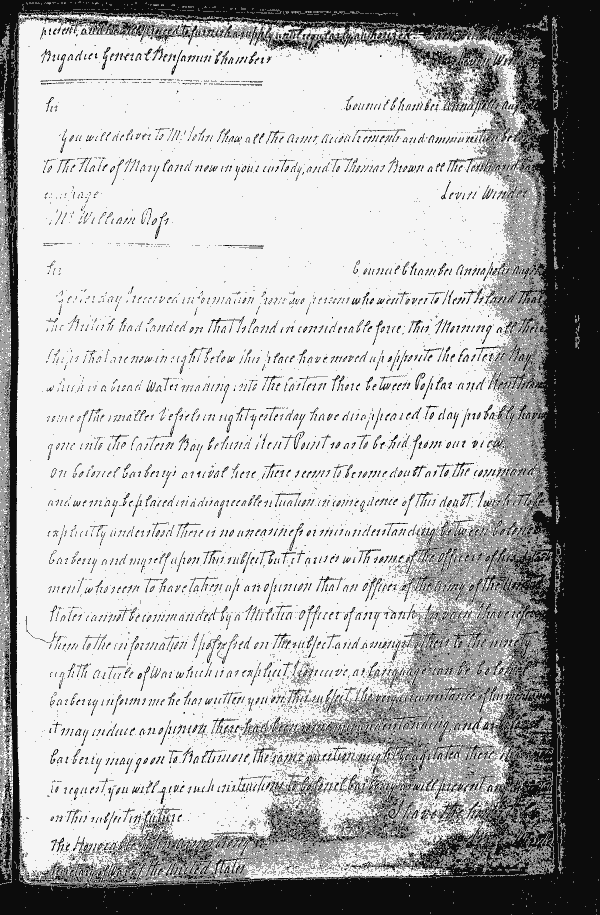 present, and to be prepared to furnish a supply until regularly authorized
Brigadier General Benjamin Chambers
Sir Council Chamber Annapolis
You will deliver to Mr John Shaw all the arms, accoutrements and ammunition
to the State of Maryland now in your custody, and to Thomas Brown all the
equipage Levin Winder
Mr William Ross
Sir Council Chamber Annapolis
Yesterday I received information from two persons who went over to Kent Island that
the British had landed on that Island in considerable force, this Morning all their
ships that are now in sight below this place have moved up opposite the Eastern Bay
which is a broad Water making into the Eastern Shore between Poplar and Kent
some of the smaller Vessels in sight yesterday have disappeared to day probably having
gone into the Eastern Bay behind Kent Point so as to be hid from our view.
On Colonel Carberry's arrival here, there seems to be some doubt as to the command,
and we may be placed in a disagreeable situation in consequence of this doubt, I wish
explicitly understood there is no uneasiness or misunderstanding between Colonel
Carberry and myself upon this subject, but it arises with some of the officers of his
ment, who seem to have taken up an opinion that an officer of the army of the United
States cannot be commanded by a Militia officer of any rank, I have
them to the information I possessed on the subject and amongst others to the ninety
eighth article of War which is as explicit I conceive, as language can be. Colonel
Carberry informs me he has written you on this subject, the very circumstance of
it may induce an opinion there had been misunderstanding, and as
Carberry may go on to Baltimore, the same question might be agitated there,
to request you will give such instructions to Colonel Carberry as will prevent
on this subject in future. I have the
The Honorable
of the United States